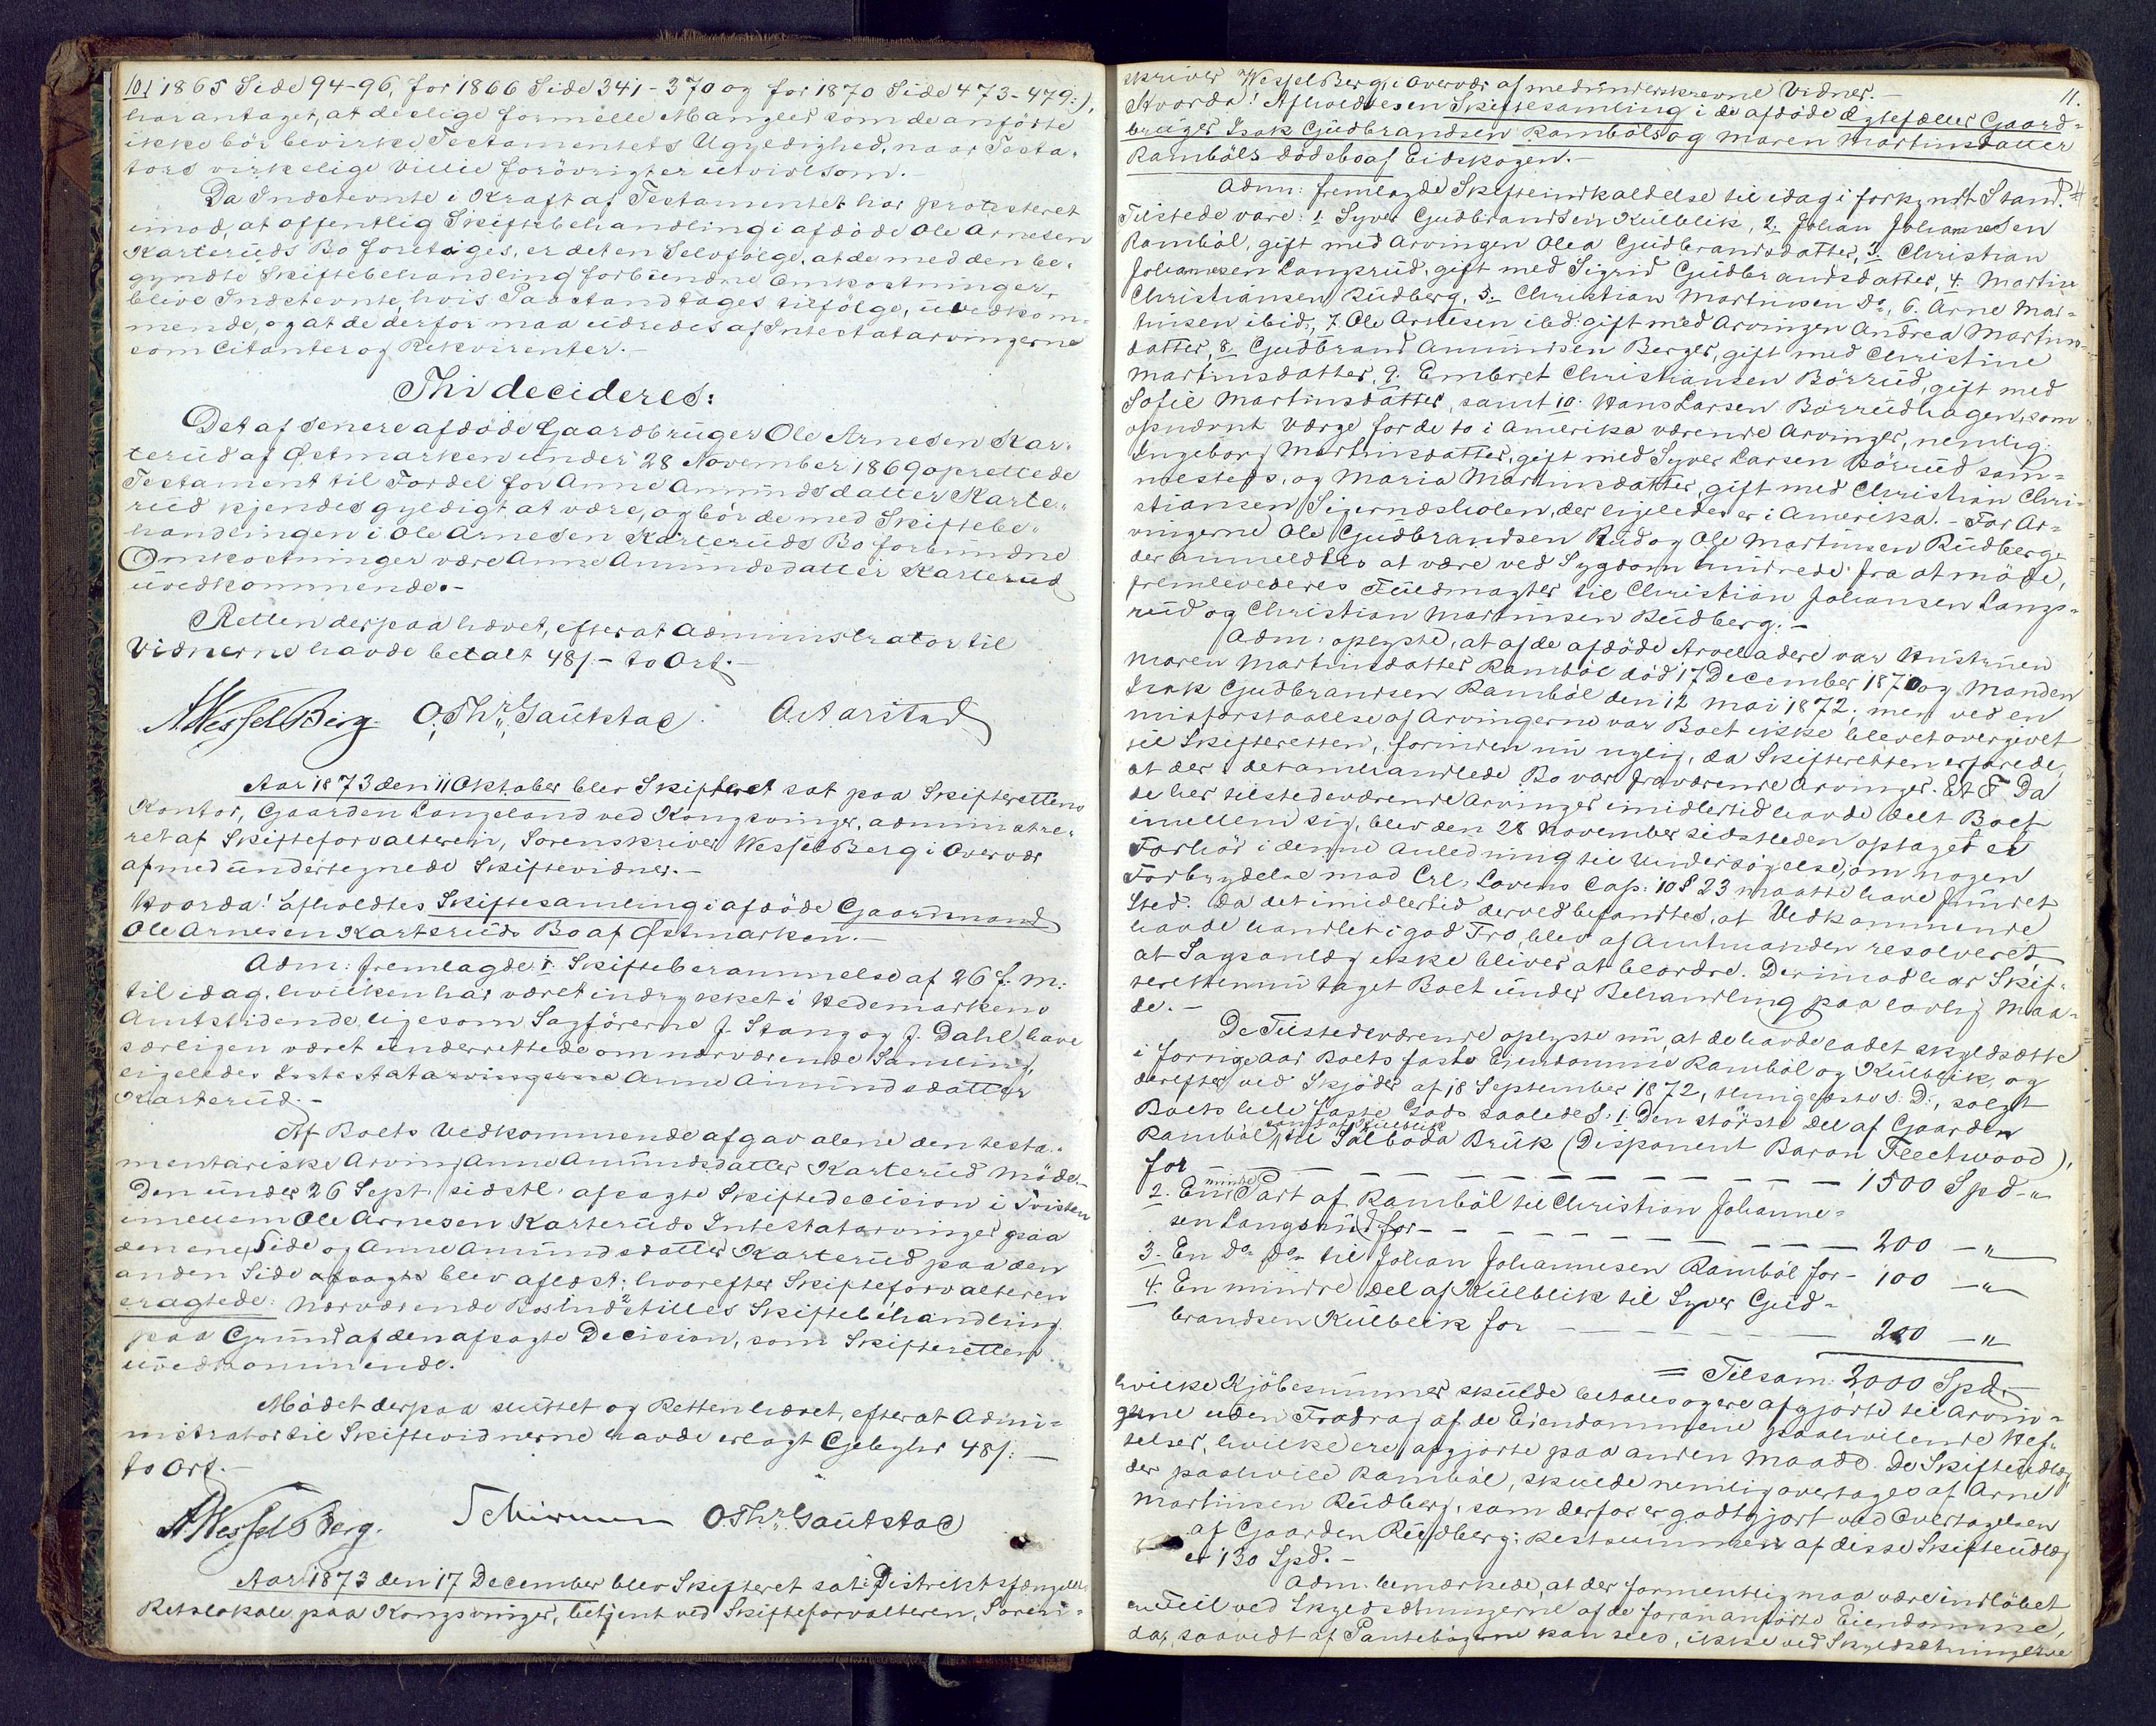 10. 1865 Side 94-96, for 1866 Side 341-370 og for 1870 Side 473-479:),
har antaget, at deslige formelle Mangler som de anførte
ikke bør bevirke Testamentets Ugyldighed, naar Testa-
tors virkelige Villie forøvrigt er utvivlsom.
Da Indstevnte i Kraft af Testamentet har protesteret
imod, at offentlig Skiftebehandling i afdøde Ole Arnesen
Karteruds Bo foretages, er det en Selvfølge, at de med den be-
gyndte Skiftebehandling forbundne Omkostninger,
blive Indstevnte, hvis Paastand tages tilfølge, uvedkom-
mende, og at de derfor maa udredes af Intestatarvingerne
som Citanter og Rekvirenter.-
Thi decideres:
Det af senere afdøde Gaardbruger Ole Arnesen Kar-
terud af Østmarken under 28 November 1869 oprettede
Testament til Fordel for Anne Amundsdatter Karte-
rud kjendes gyldigt at være, og bør de med Skiftebe-
handlingen i Ole Arnesen Karteruds Bo forbundne
Omkostninger være Anne Amundsdatter Karterud
uvedkommende.-
Retten derpaa hævet, efterat Administrator til
Vidnerne havde betalt 48/.- to Ort.-
A Wessel Berg. O. Thr. Gaukstad. O. Aarstad
Aar 1873 den 11 Oktober blev Skifteret sat paa Skifterettens
Kontor, Gaarden Langeland ved Kongsvinger, administre-
ret af Skifteforvalteren, Sorenskriver Wessel Berg i Overvær
af medundertegnede Skiftevidner.-
Hvorda! afholdtes Skiftesamling i afdøde Gaardmand
Ole Arnesen Karteruds Bo af Østmarken.-
Adm: fremlagde 1. Skifteberammelse af 26 f. M.
til idag, hvilken har været indrykket i Hedemarkens
Amtstidende, ligesom Sagførerne J. Stang og J. Dahl have
særligen været underrettede om nærværende Samling,
ligeledes Intestatarvingerne Anne Amundsdatter
Karterud.-
Af Boets Vedkommende afgav alene den testa-
mentariske Arving Anne Amundsdatter Karterud Møde.-
Den under 26 Sept. sidstl. afsagte Skiftedecision i Tvisten
imellem Ole Arnesen Karteruds Intestatarvinger paa
den ene Side og Anne Amundsdatter Karterud paa den
anden Side afsagte blev aflæst; hvorefter Skifteforvalteren
eragtede: Nærværende Bos Indstilles Skiftebehandling
paa Grund af den afsagte Decision, som Skifteretten
uvedkommende.
Mødet derpaa sluttet og Retten hævet, efterat Admi-
nistrator til Skiftevidnerne havde erlagt Gebyhr 48/:-
to Ort.-
A Wessel Berg. Schirmer O. Thr. Gaukstad
Aar 1873 den 17 December blev Skifteret sat i Distriktsfængslets
Retslokale paa Kongsvinger, betjent ved Skifteforvalteren, Soren-
11.
skriver Wessel Berg, i Overvær af medunderskrevne Vidner.-
Hvorda! Afholdtes en Skiftesamling i de afdøde Ægtefæller Gaard-
bruger Isak Gudbrandsen Rambøls og Maren Martinsdatter
Rambøls Dødsbo af Eidskogen.-
Adm: fremlagde Skifteindkaldelse til idag i forkyndt Stand.
Tilstede vare: 1. Syver Gudbrandsen Kulblik, 2. Johan Johannesen
Rambøl, gift med Arvingen Olea Gudbrandsdatter, 3. Christian
Johannesen Langsrud, gift med Sigrid Gudbrandsdatter, 4. Martin
Christiansen Rudberg, 5. Christian Martinsen Do, 6. Arne Mar-
tinsen ibid:, 7. Ole Arnesen ibd: gift med Arvingen Andrea Martins-
datter, 8. Gudbrand Amundsen Berger, gift med Christine
Martinsdatter, 9. Embret Christiansen Børrud, gift med
Sofie Martinsdatter, samt 10. Hans Larsen Børrudhagen, som
opnævnt Værge for de to i Amerika værende Arvinger, nemlig:
Ingeborg Martinsdatter, gift med Syver Larsen Børrud sam-
mesteds, og Maria Martinsdatter, gift med Christian Chri-
stiansen Sigernæsholen, der ligeledes er i Amerika.- For Ar-
vingerne Ole Gudbrandsen Rud og Ole Martinsen Rudberg,
der anmeldtes at være ved Sygdom hindrede fra at møde,
fremlevedes Fuldmagter til Christian Johansen Langs-
rud og Christian Martinsen Rudberg.-
Adm: oplyste, at af de afdøde Arveladere var Hustruen
Maren Martinsdatter Rambøl død 17 December 1870 og Manden
Isak Gudbrandsen Rambøl den 12 Mai 1872; men ved en
Misforstaaelse af Arvingerne var Boet ikke blevet overgivet
til Skifteretten, forinden nu nylig, da Skifteretten erfarede,
at der i det omhandlede Bo var fraværende Arvinger. Et F Da
de her tilstedeværende Arvinger imidlertid havde delt Boet
imellem sig, blev den 28 November sidstleden optaget et
Forhør i denne Anledning til Undersøgelse, om nogen
Forbrydelse mod Crl. Lovens Cap: 10 § 23 maatte have fundet
Sted. Da det imidlertid derved befandtes, at Vedkommende
havde handlet i god Tro, blev af Amtmanden resolveret,
at Sagsanlæg ikke bliver at beordre. Derimod har Skif-
teretten nu taget Boet under Behandling paa lovlig Maa-
de.-
De Tilstedeværende oplyste nu, at de havde ladet skyldsætte
i forrige Aar Boets faste Eiendomme Rambøl og Kulblik, og
derefter ved Skjøder af 18 September 1872, thinglæste s. D., solgt
Boets hele faste Gods saaledes: 1. Den største Del af Gaarden
Rambøl samt af Kulblik til Sælboda Bruk (Disponent Baron Fleetwood),
for - - - - - - - - - 1500 Spd-"
2. En mindre Part af Rambøl til Christian Johanne-
sen Langsrud for - - - - - - - 200 -"
3. En Do Do til Johan Johannesen Rambøl for - 100 -"
4. En mindre Del af Kulblik til Syver Gud-
brandsen Kulblik for - - - - - 200 -"
= Tilsam: 2000 Spd.
hvilke Kjøbesummer skulde betales og ere afgjorte til Arvin-
gerne uden Fradrag af de Eiendommene paahvilende Hef-
telser, hvilke ere afgjorte paa anden Maade. De Skifteudlæg
der paahvile Rambøl, skulde nemlig overtages af Arne
Martinsen Rudberg, som derfor er godtgjort ved Overtagelsen
af Gaarden Rudberg; Restsummen af disse Skifteudlæg
er 130 Spd.-
Adm. bemærkede, at der formentlig maa være indløbet
en Feil ved Skyldsætningerne af de foran anførte Eiendomme,
da, saavidt af Pantebøgerne kan sees, ikke ved Skyldsætningerne